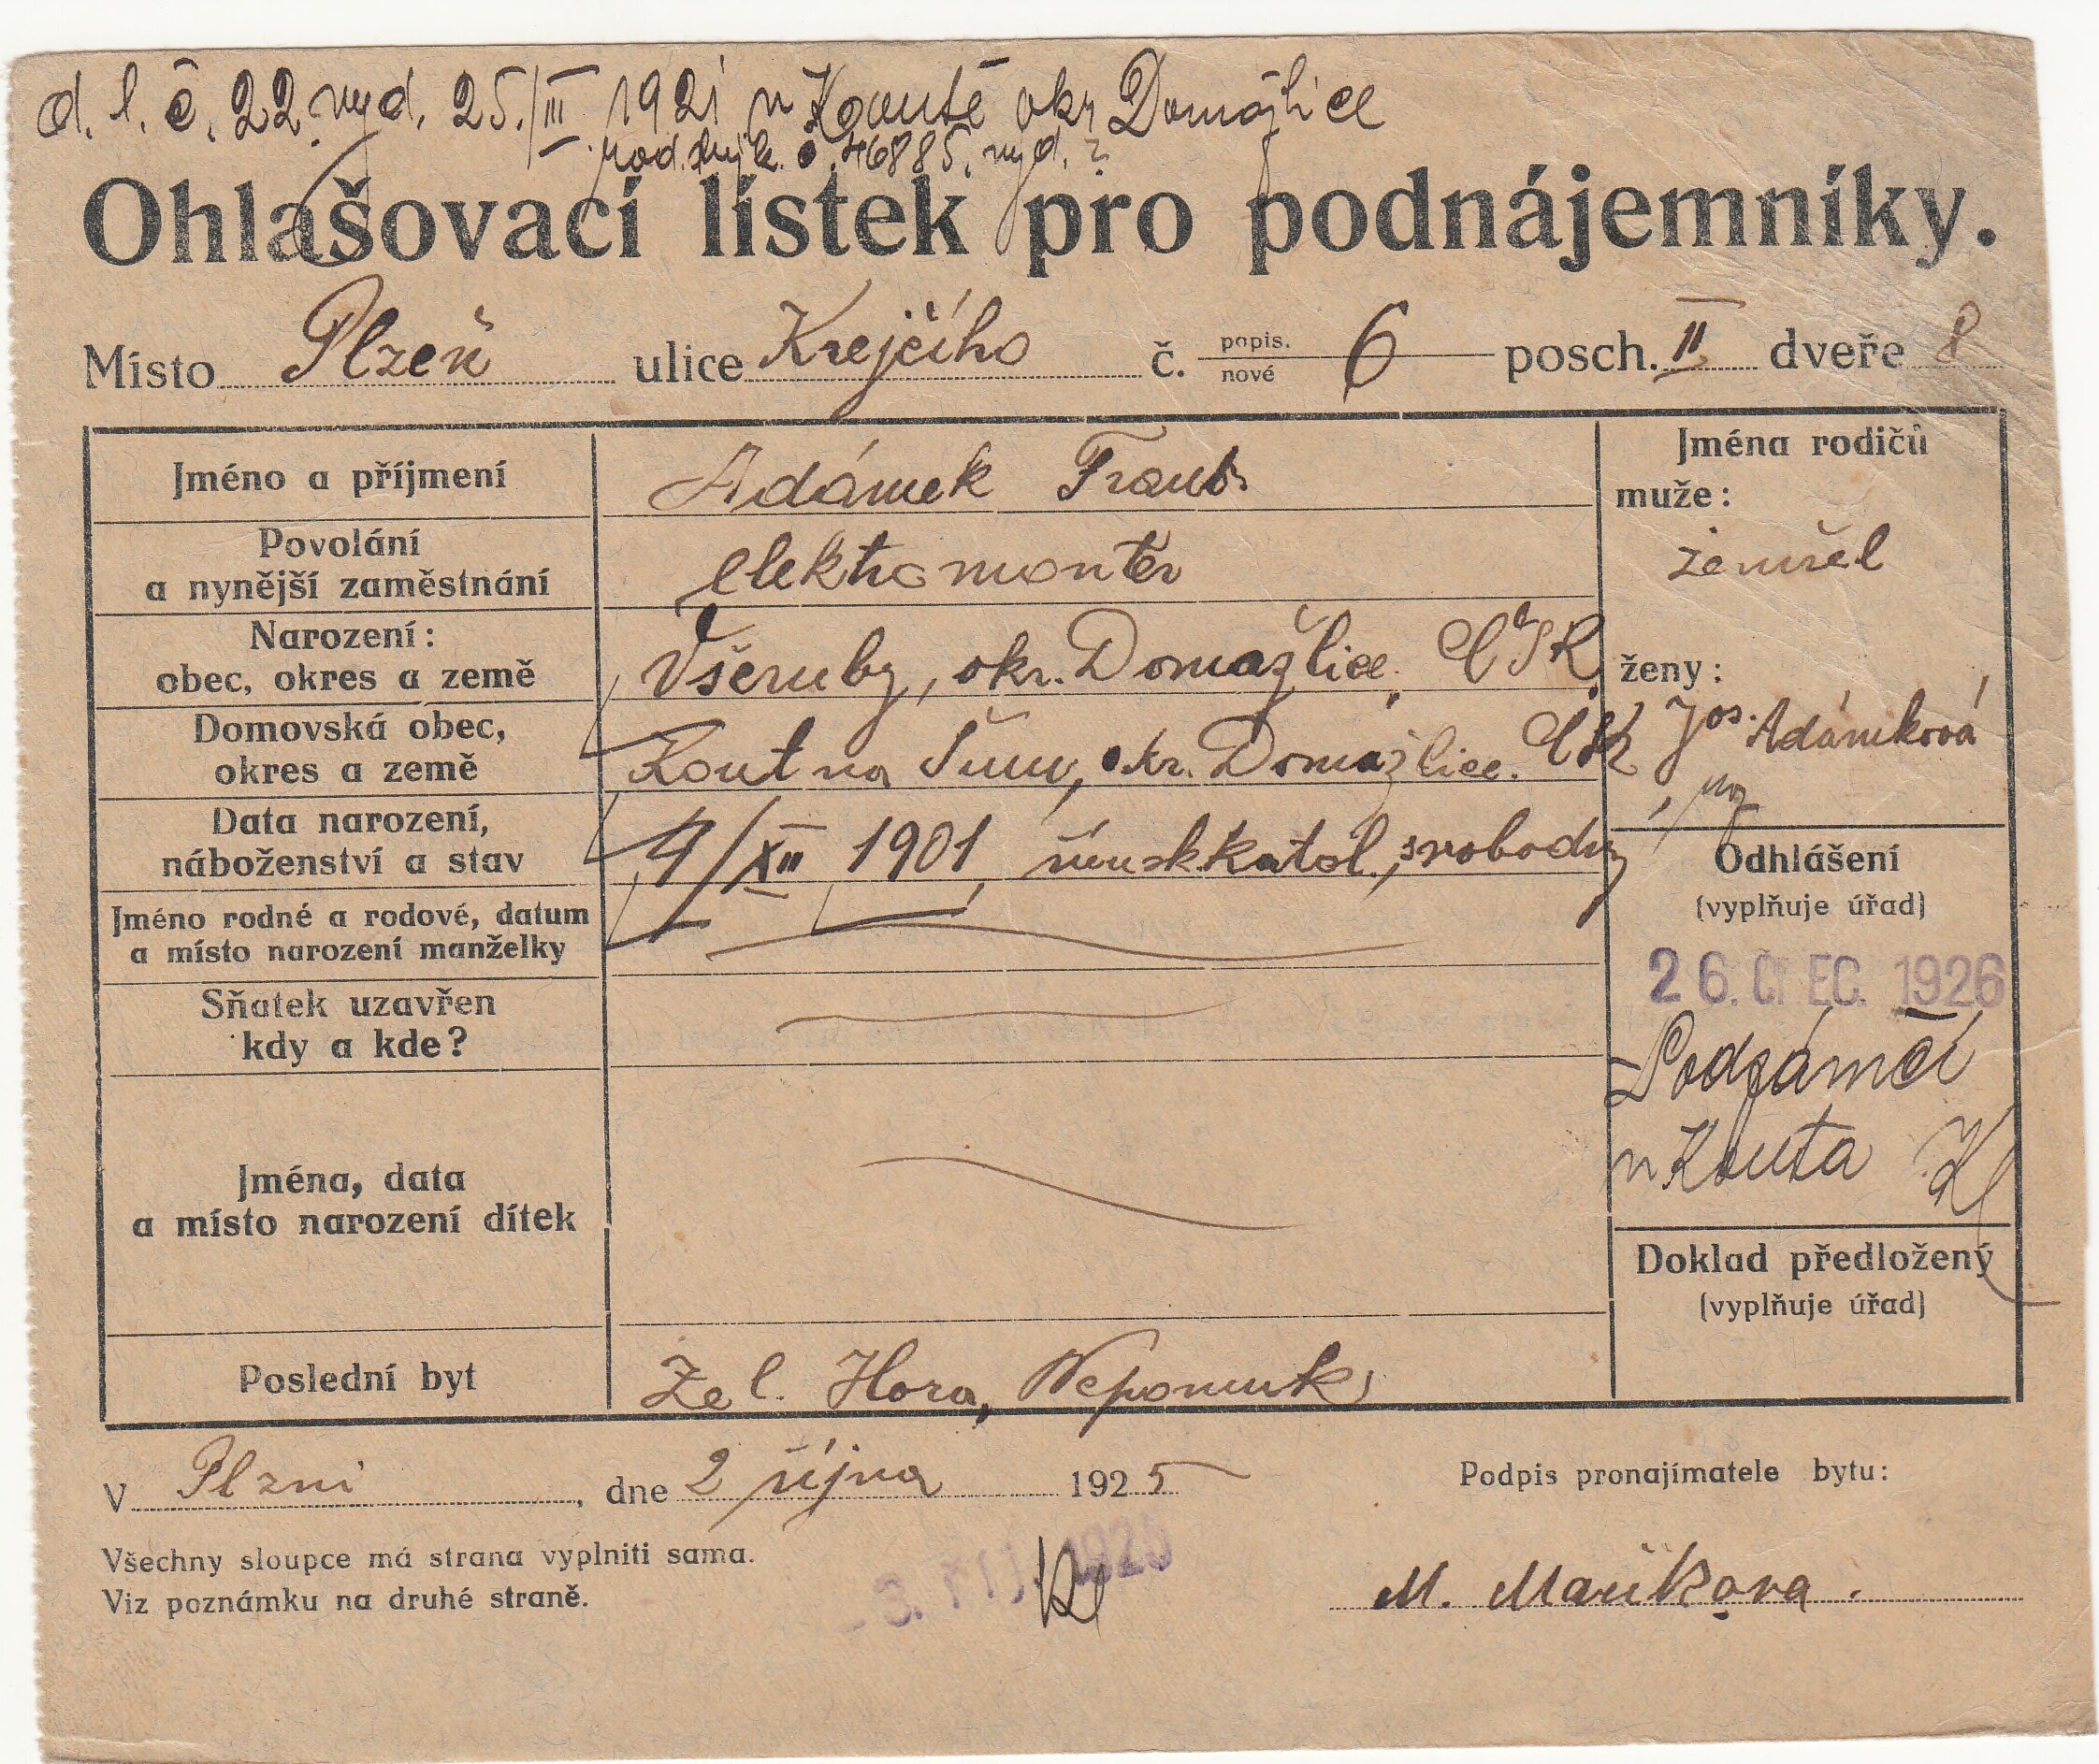 d. l. č. 22 vyd. 25./III. 1921 v Koutě okr Domažlice
č. 46885, vyd. ?
Ohlašovací lístek pro podnájemníky.
Místo Plzeň ulice Krejčího č. popis. nové 6 posch. II dveře 8
Jméno a příjmení Adámek Frant.
Jména rodičů
muže:
zemřel
Povolání
a nynější zaměstnání elektromontér
Narození:
obec, okres a země Všeruby, okr. Domažlice. ČSR.
ženy:
Jos. Adámková
Domovská obec,
okres a země Kout na Šum, okr. Domažlice. ČSR
Data narození,
náboženství a stav 4/XII 1901, římsk katol., svobodný
Jméno rodné a rodové, datum
a místo narození manželky
Odhlášení
(vyplňuje úřad)
26. ČEC. 1926
Podzámčí
u Kouta
Sňatek uzavřen
kdy a kde?
Jména, data
a místo narození dítek
Doklad předložený
(vyplňuje úřad)
Poslední byt Zel. Hora, Nepomuk
V Plzni, dne 2 října 1925
Podpis pronajímatele bytu:
Všechny sloupce má strana vyplniti sama.
Viz poznámku na druhé straně.
-3. ŘÍJ 1925
M. Maříkova.